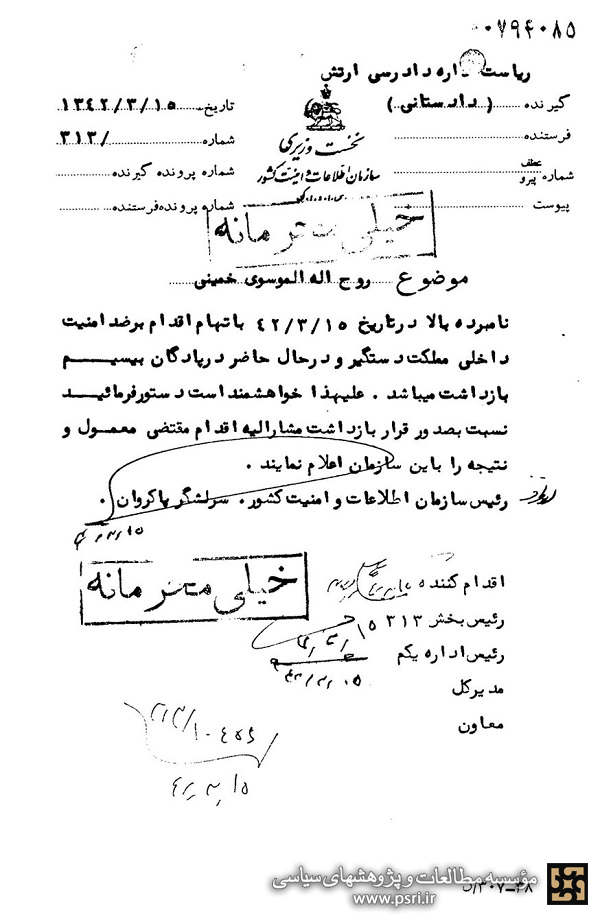 ۰۷۹۴۰۸۵
ریاست اداره دادرسی ارتش
گیرنده (دادستانی) تاریخ ۱۳۴۲/۳/۱۵
فرستنده شماره ۳۱۳/
نخست وزیری
سازمان اطلاعات و امنیت کشور
عطف
شماره پیرو شماره پرونده گیرنده
پیوست شماره پرونده فرستنده
خیلی محرمانه
موضوع روح اله الموسوی خمینی
نامبرده بالا در تاریخ ۴۲/۳/۱۵ باتهام اقدام بر ضد امنیت
داخلی مملکت دستگیر و در حال حاضر در پادگان بیسیم
بازداشت میباشد . علیهذا خواهشمند است دستور فرمائید
نسبت بصدور قرار بازداشت مشارالیه اقدام مقتضی معمول و
نتیجه را باین سازمان اعلام نمایند .
رئیس سازمان اطلاعات و امنیت کشور . سرلشگر پاکروان .
خیلی محرمانه
اقدام کننده
رئیس بخش ۳۱۳
رئیس اداره یکم
مدیرکل
معاون
مؤسسه مطالعات و پژوهشهای سیاسی
www.psri.ir